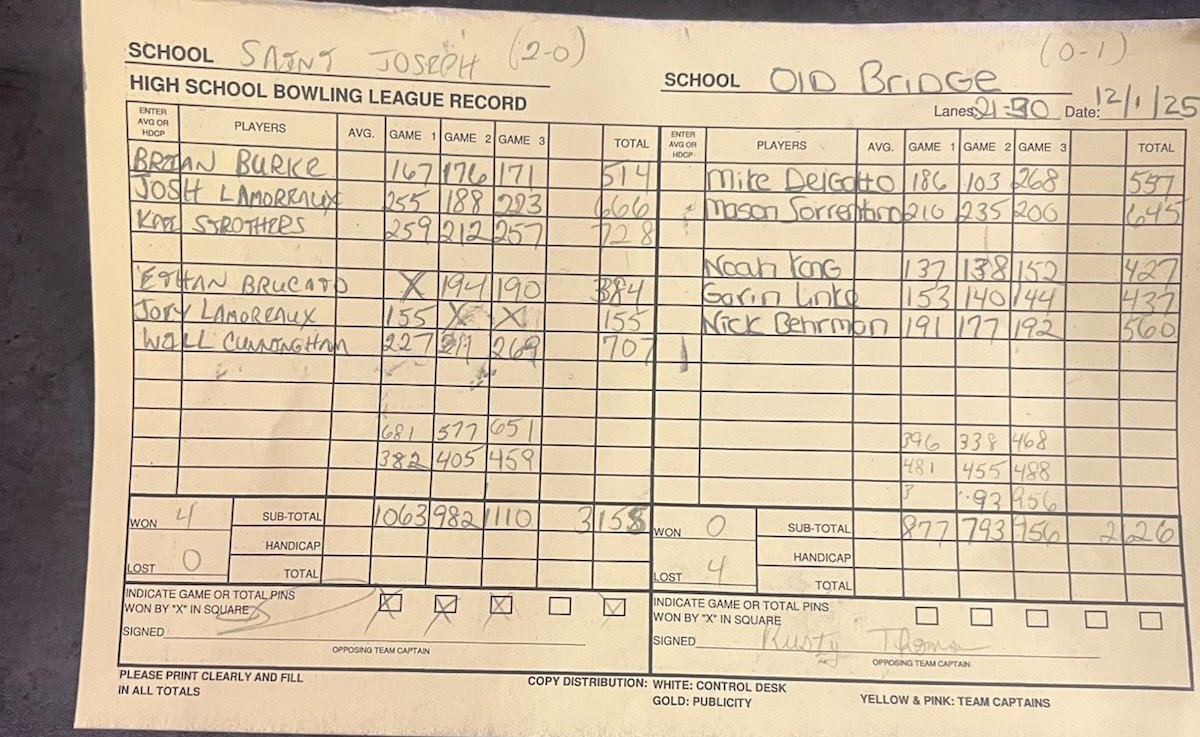 SCHOOL SAINT JOSEPH (2-0)
HIGH SCHOOL BOWLING LEAGUE RECORD
ENTER AVG OR HDCP PLAYERS AVG. GAME 1 GAME 2 GAME 3 TOTAL
BRIAN BURKE 167 176 171 514
JOSH LAMOREAUX 255 188 223 666
STROTHERS 259 212 257 728
ETHAN BRUCATO X 194 190 384
JOEY LAMOREAUX 155 X X 155
WILL CUNNINGHAM 227 211 269 707
681 577 651
382 405 459
WON 4 SUB-TOTAL 1063 982 1110 3155
HANDICAP
LOST 0 TOTAL
INDICATE GAME OR TOTAL PINS
WON BY "X" IN SQUARE X X X X
SIGNED
OPPOSING TEAM CAPTAIN
SCHOOL Old Bridge (0-1)
Lanes: 21-30 Date: 12/1/25
ENTER AVG OR HDCP PLAYERS AVG. GAME 1 GAME 2 GAME 3 TOTAL
Mike DelGatto 186 103 268 557
Mason Sorrentino 210 235 200 645
Noah Yong 137 138 152 427
Gavin Linke 153 140 144 437
Nick Behrman 191 177 192 560
396 338 468
481 455 488
3 93 956
WON 0 SUB-TOTAL 877 793 956 2626
HANDICAP
LOST 4 TOTAL
INDICATE GAME OR TOTAL PINS
WON BY "X" IN SQUARE
SIGNED Rusty Thoma
OPPOSING TEAM CAPTAIN
PLEASE PRINT CLEARLY AND FILL
IN ALL TOTALS
COPY DISTRIBUTION: WHITE: CONTROL DESK
GOLD: PUBLICITY
YELLOW & PINK: TEAM CAPTAINS